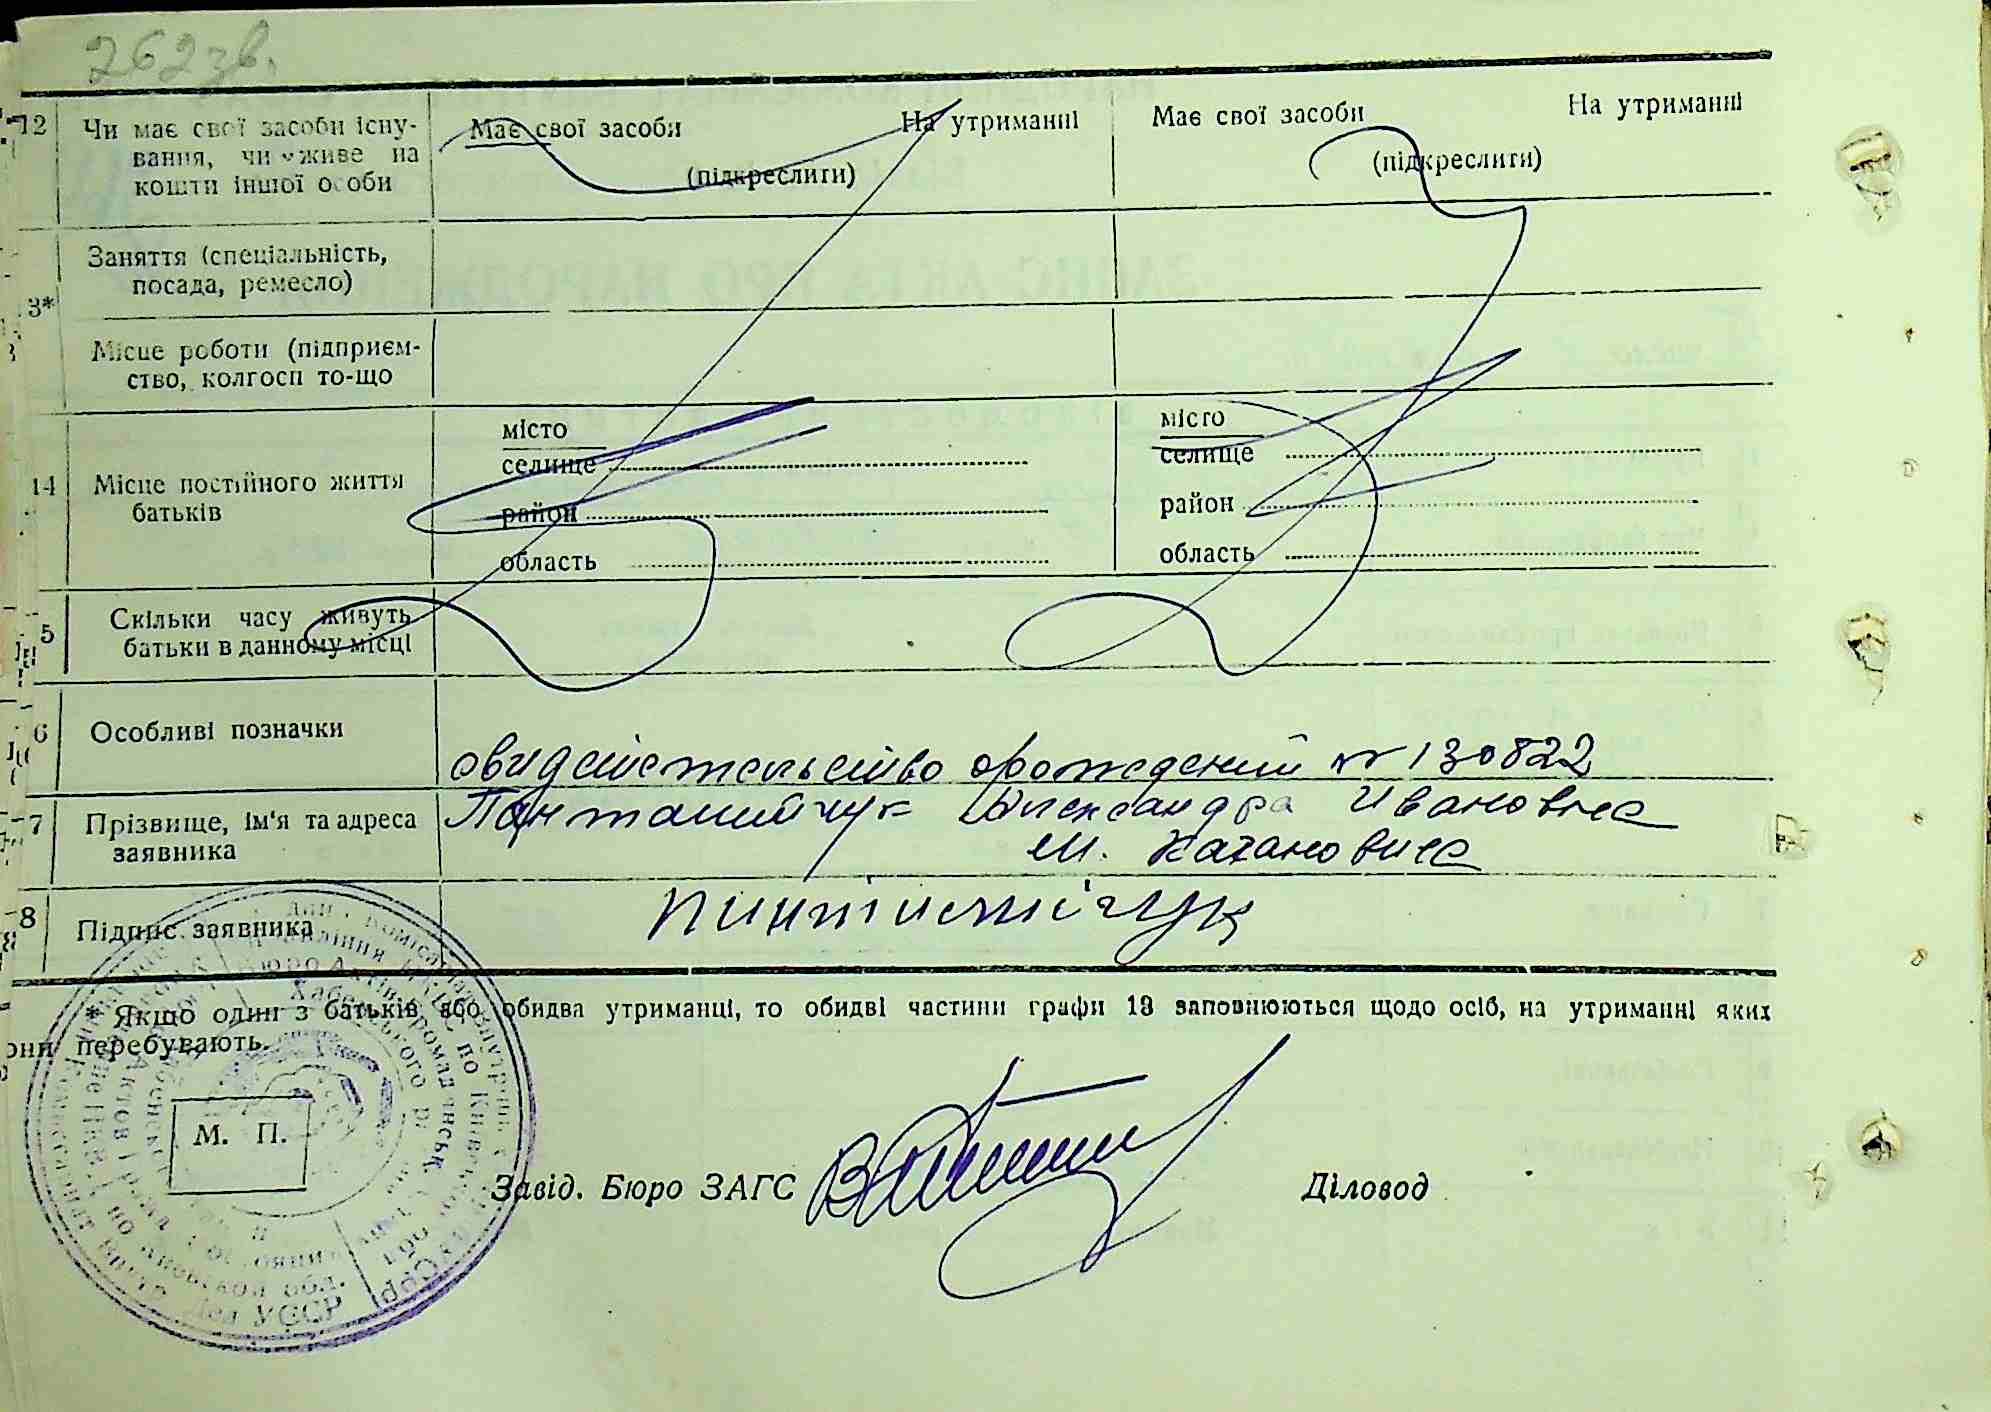 262зв.
12 Чи має свої засоби існу- Має свої засоби На утриманні Має свої засоби На утриманні
вання, чи живе на (підкреслити) (підкреслити)
кошти іншої особи
Заняття (спеціальність,
посада, ремесло)
3*
Місце роботи (підприєм-
ство, колгосп то-що
місто місто
селище селище
14 Місце постійного життя район район
батьків
область область
5 Скільки часу живуть
батьки в данному місці
6 Особливі позначки
свидетельство орождений № 130822
7 Прізвище, ім'я та адреса Александра Ивановна
заявника м. Кагановича
8 Підпис заявника
* Якщо один з батьків або обидва утриманці, то обидві частини графи 13 заповнюються щодо осіб, на утриманні яких
они перебувають.
М. П.
Завід. Бюро ЗАГС Діловод